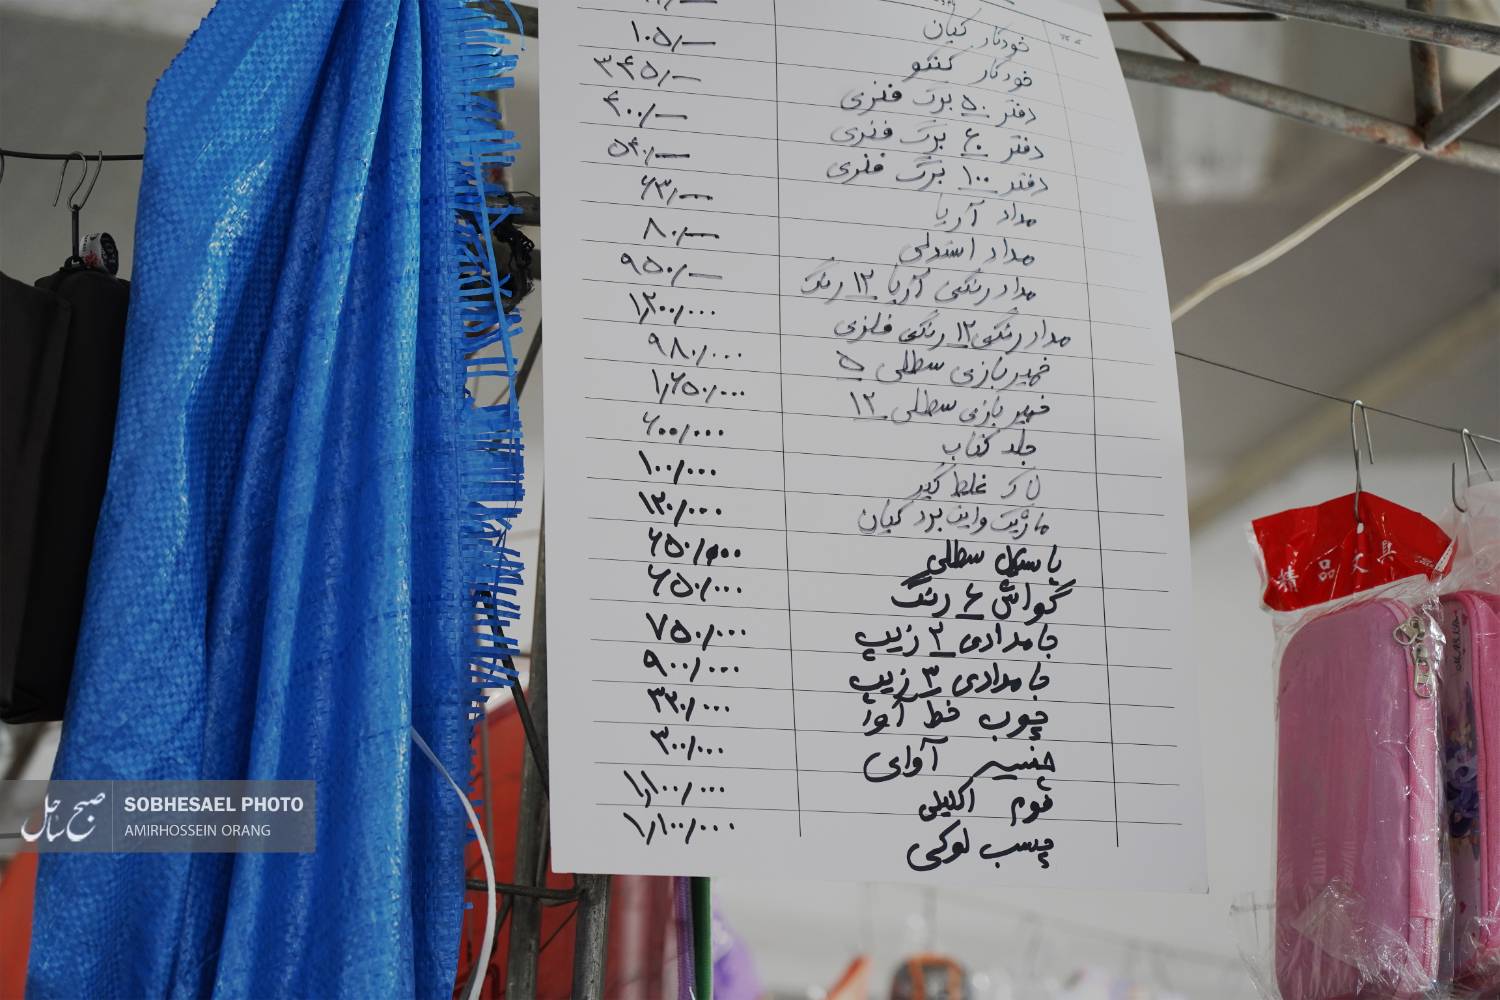 خودکار کیان ۱۰۵/—
خودکار کنکو ۳۴۵/—
دفتر ۵۰ برگ فنری ۴۰۰/—
دفتر ۶۰ برگ فنری ۵۴۰/—
دفتر ۱۰۰ برگ فنری ۶۳/—
مداد آریا ۸۰/—
مداد استدلی ۹۵۰/—
مداد رنگی آریا ۱۲ رنگ ۱/۲۰۰/۰۰۰
مداد رنگی ۱۲ رنگی فلزی ۹۸۰/۰۰۰
خمیر بازی سطلی ۵ ۱/۶۵۰/۰۰۰
خمیر بازی سطلی ۱۲ ۶۰۰/۰۰۰
جلد کتاب ۱۰۰/۰۰۰
لاک غلط گیر ۱۳۰/۰۰۰
ماژیک وایت برد کیان ۶۵۰/۰۰۰
پاستل سطلی ۶۵۰/۰۰۰
گواش ۶ رنگ ۷۵۰/۰۰۰
جامدادی ۲ زیپ ۹۰۰/۰۰۰
جامدادی ۳ زیپ ۳۲۰/۰۰۰
چوب خط آوا ۳۰۰/۰۰۰
آوای ۱/۱۰۰/۰۰۰
فوم اکلیلی ۱/۱۰۰/۰۰۰
چسب لوکی
精品文具
صبح ساحل
SOBHESAEL PHOTO
AMIRHOSSEIN ORANG